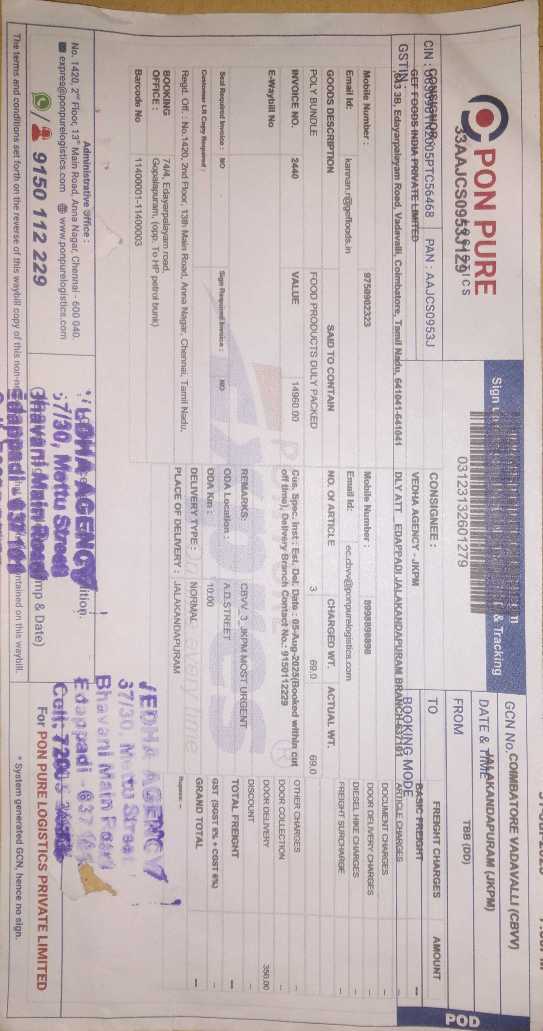 PON PURE
LOGISTICS
33AAJCS0953J1Z9
PAN : AAJCS0953J
GSTIN
POD
GCN No.
COIMBATORE VADAVALLI (CBVV)
DATE & TIME
JALAKANDAPURAM (JKPM)
FROM
TBB (DD)
TO
BOOKING MODE
03123132601279
& Tracking
CONSIGNOR
GEF FOODS INDIA PRIVATE LIMITED
3B, Edayarpalayam Road, Vadavalli, Coimbatore, Tamil Nadu, 641041-641041
Mobile Number : 9750902323
Email Id: kannan.r@geffoods.in
CONSIGNEE :
VEDHA AGENCY - JKPM
DLY ATT EDAPPADI JALAKANDAPURAM BRANCH-637101
Mobile Number : 8998898898
Email Id: ec.cbvv@ponpurelogistics.com
FREIGHT CHARGES AMOUNT
BASIC FREIGHT --
ARTICLE CHARGES
DOCUMENT CHARGES --
DOOR DELIVERY CHARGES
DIESEL HIKE CHARGES
FREIGHT SURCHARGE
OTHER CHARGES
DOOR COLLECTION --
DOOR DELIVERY 350.00
DISCOUNT
TOTAL FREIGHT --
GST (SGST 6% + CGST 6%) --
GRAND TOTAL --
GOODS DESCRIPTION SAID TO CONTAIN NO. OF ARTICLE CHARGED WT. ACTUAL WT.
POLY BUNDLE FOOD PRODUCTS DULY PACKED 3 69.0 69.0
INVOICE NO. 2440 VALUE 14960.00
Cus. Spec. Inst : Est. Del. Date : 05-Aug-2025(Booked within cut
off time), Delivery Branch Contact No.: 9150112229
E-Waybill No
REMARKS: CBVV_3_JKPM MOST URGENT
ODA Location : A.D.STREET
ODA Km : 10.00
DELIVERY TYPE : NORMAL
PLACE OF DELIVERY : JALAKANDAPURAM
Seal Required Invoice : NO Sign Required Invoice : NO
Customer LR Copy Required :
Regd. Off : No.1420, 2nd Floor, 13th Main Road, Anna Nagar, Chennai, Tamil Nadu,
BOOKING OFFICE : 74/4, Edayarpalayam road,
Gopalapuram, (opp. To HP
petrol bunk)
Barcode No 11400001-11400003
VEDHA AGENCY
67/30, Mettu Street
Bhavani Main Road
Edappadi - 637 101
Administrative Office :
No. 1420, 2nd Floor, 13th Main Road, Anna Nagar, Chennai - 600 040.
expres@ponpurelogistics.com www.ponpurelogistics.com
9150 112 229
VEDHA AGENCY
67/30, Mettu Street
Bhavani Main Road
Edappadi 637 101
For PON PURE LOGISTICS PRIVATE LIMITED
The terms and conditions set forth on the reverse of this waybill copy of this non-
contained on this waybill.
* System generated GCN, hence no sign.